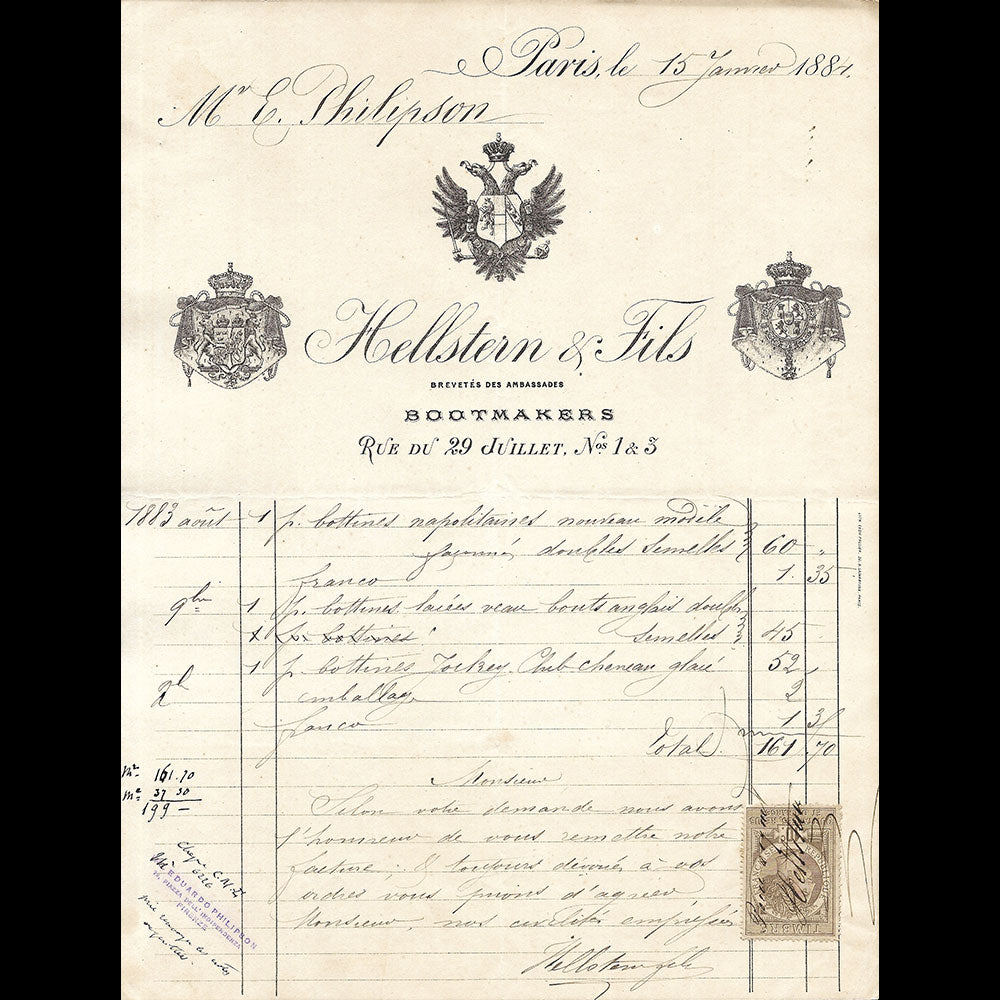 Paris, le 15 Janvier 1884.
Mr E. Philipson
Hellstern & Fils
BREVETÉS DES AMBASSADES
BOOTMAKERS
RUE DU 29 JUILLET, Nos 1 & 3
1883 août 1 p. bottines napolitaines nouveau modèle
façonné doubles semelles 60 "
franco 1. 35
9bre 1 p. bottines lacées veau bouts anglais doubles
1 p. bottines semelles 45 .
1 p. bottines Jockey Club chevreau glacé 52
emballage 2
franco 1 35
Total. 161.70
Mr 161.70
Me 37 30
199 -
Monsieur
Selon votre demande nous avons
l'honneur de vous remettre notre
facture; & toujours dévoués à vos
ordres vous prions d'agréer
Monsieur, nos civilités empressées
Hellstern & fils
6226
Mr EDUARDO PHILIPSON
PIAZZA DELL'INDIPENDENZA
FIRENZE
TIMBRE